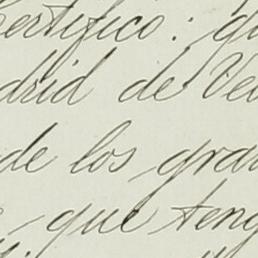 Certifico: qu
drid de Ve
de los gra
que teng